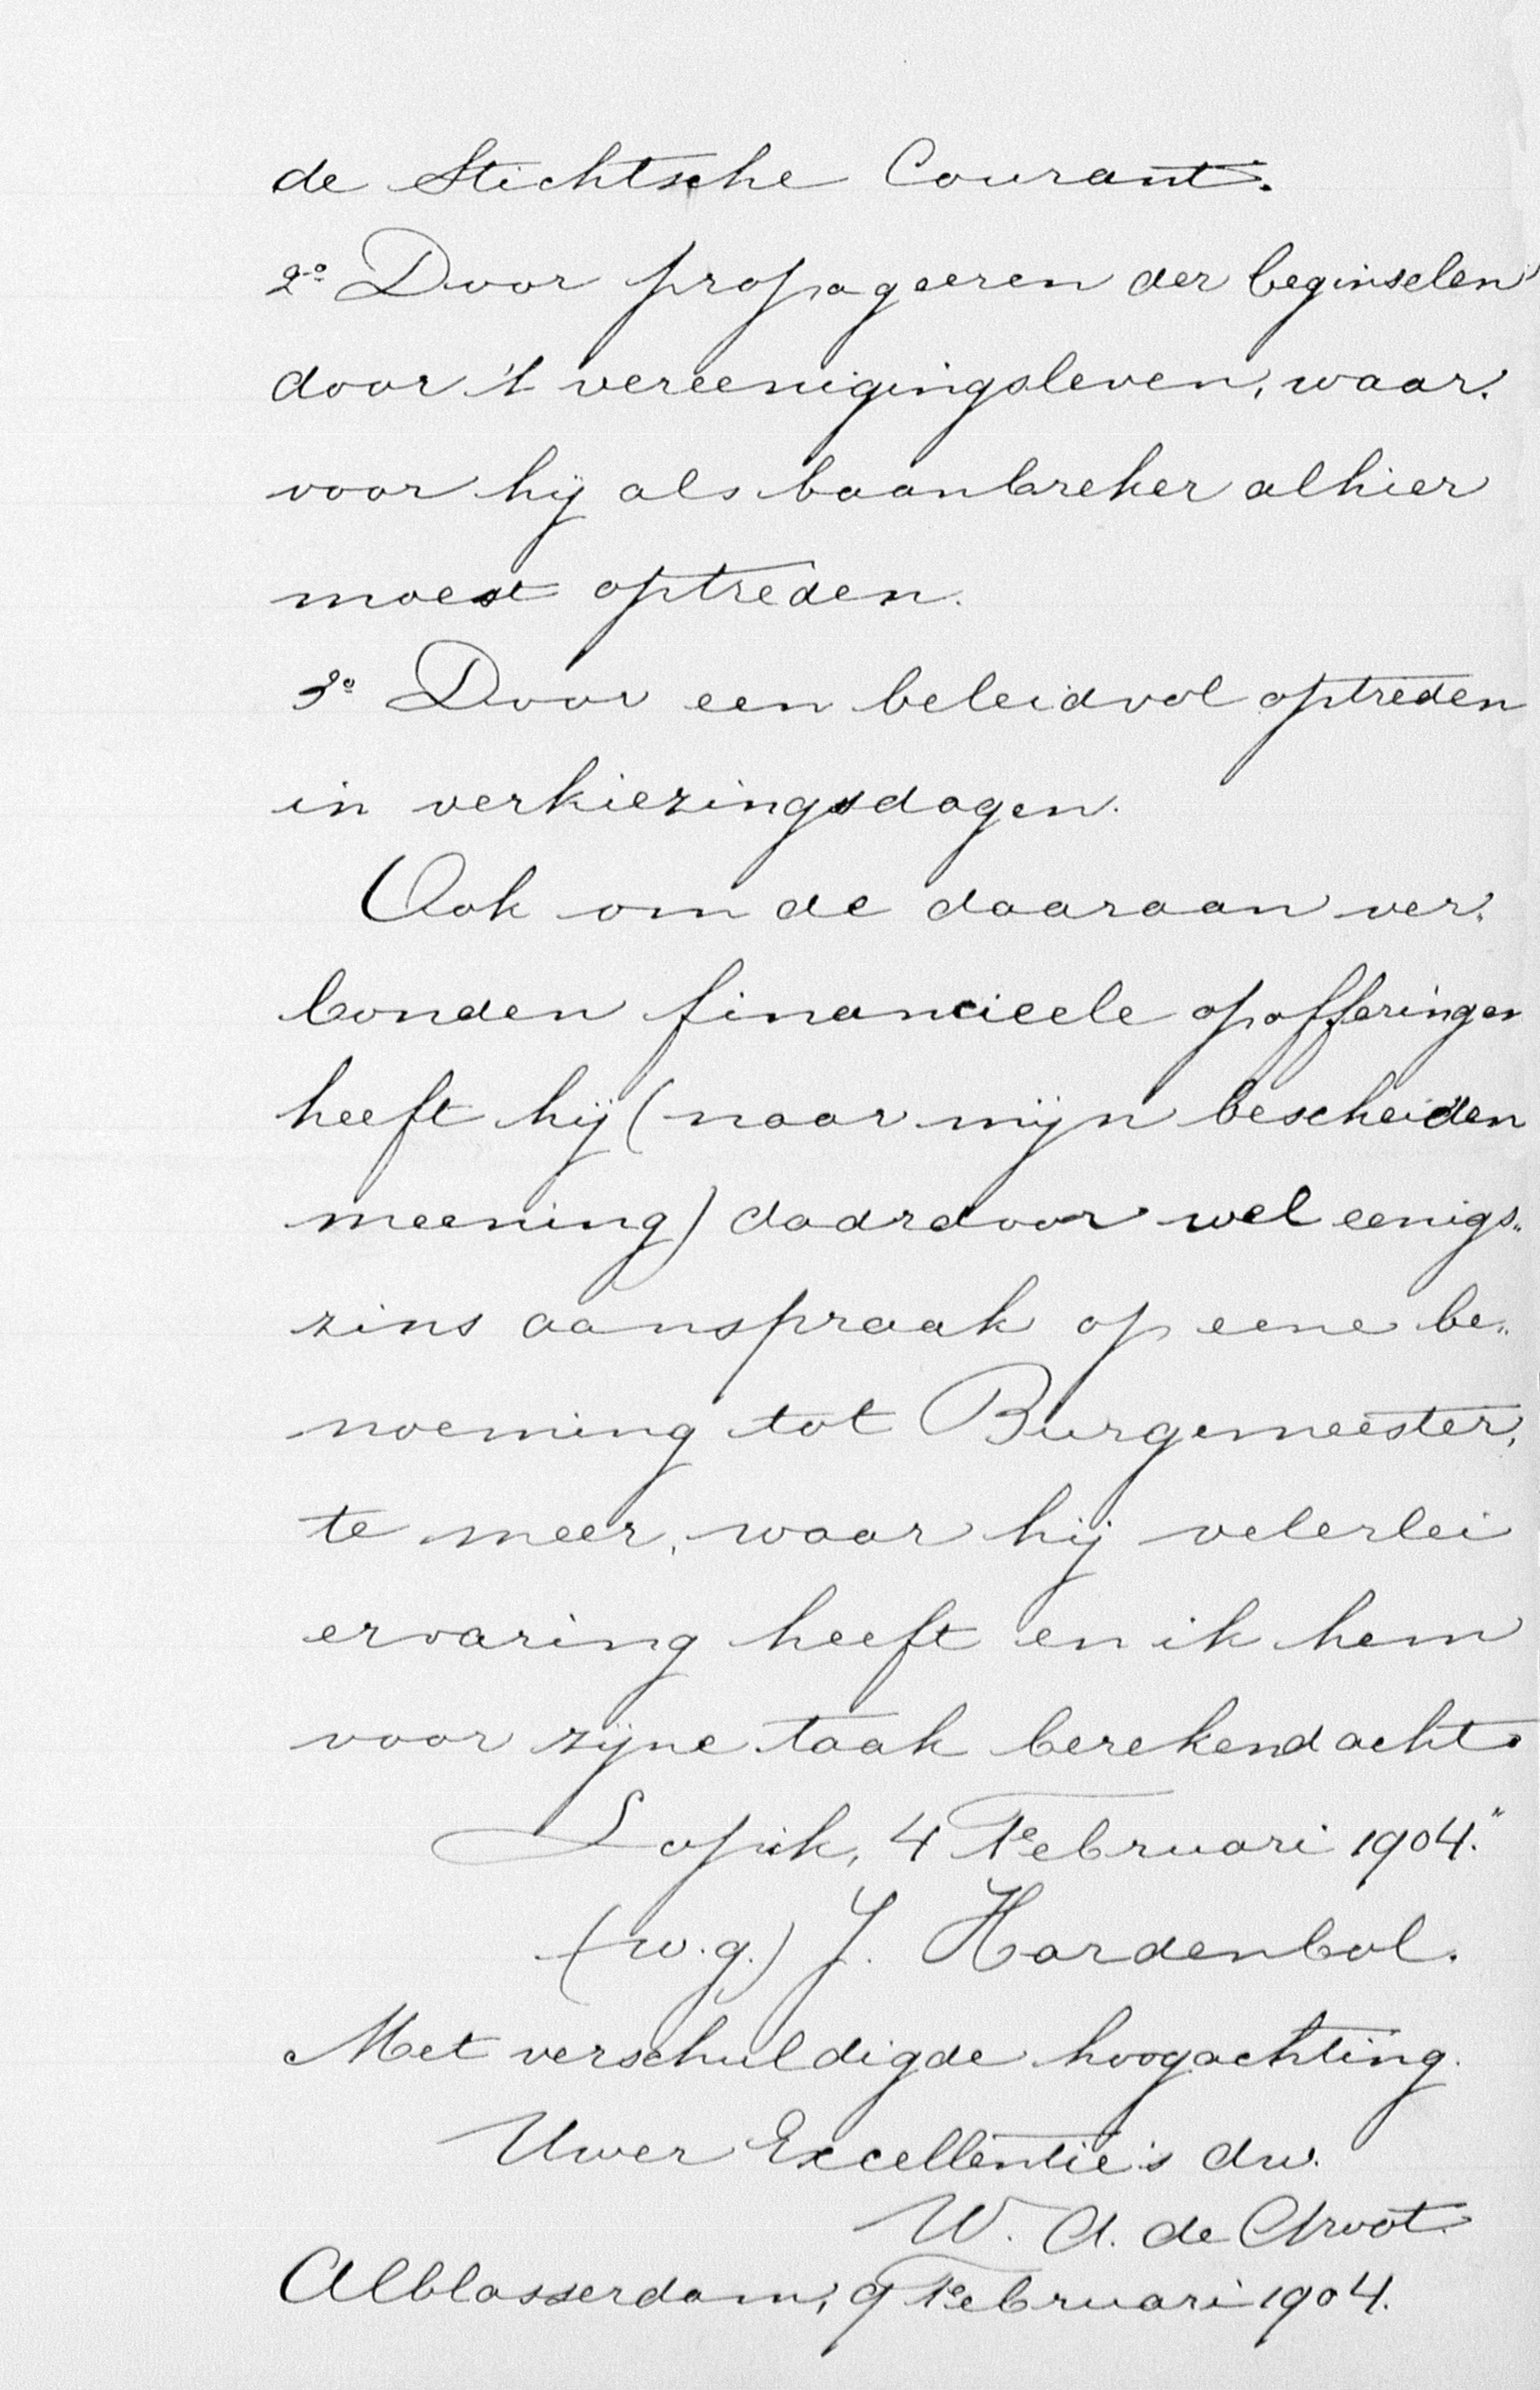 de Stichtsche Courant.
2º Door propageeren der beginselen
door 't vereenigingsleven, waar-
voor hij als baanbreker alhier
moest optreden.
3º Door een beleidvol optreden
in verkiezingsdagen.
Ook om de daaraan ver-
bonden financieele opofferingen
heeft hij (naar mijn bescheiden
meening) daardoor wel eenigs-
zins aanspraak op eene be-
noeming tot Burgemeester,
te meer, waar hij velerlei
ervaring heeft en ik hem
voor zijne taak berekend acht.
Lopik, 4 Februari 1904."
(w.g.) J. Hardenbol.
Met verschuldigde hoogachting.
Uwer Excellentie's dw.
W. A. de Groot
Alblasserdam, 9 Februari 1904.